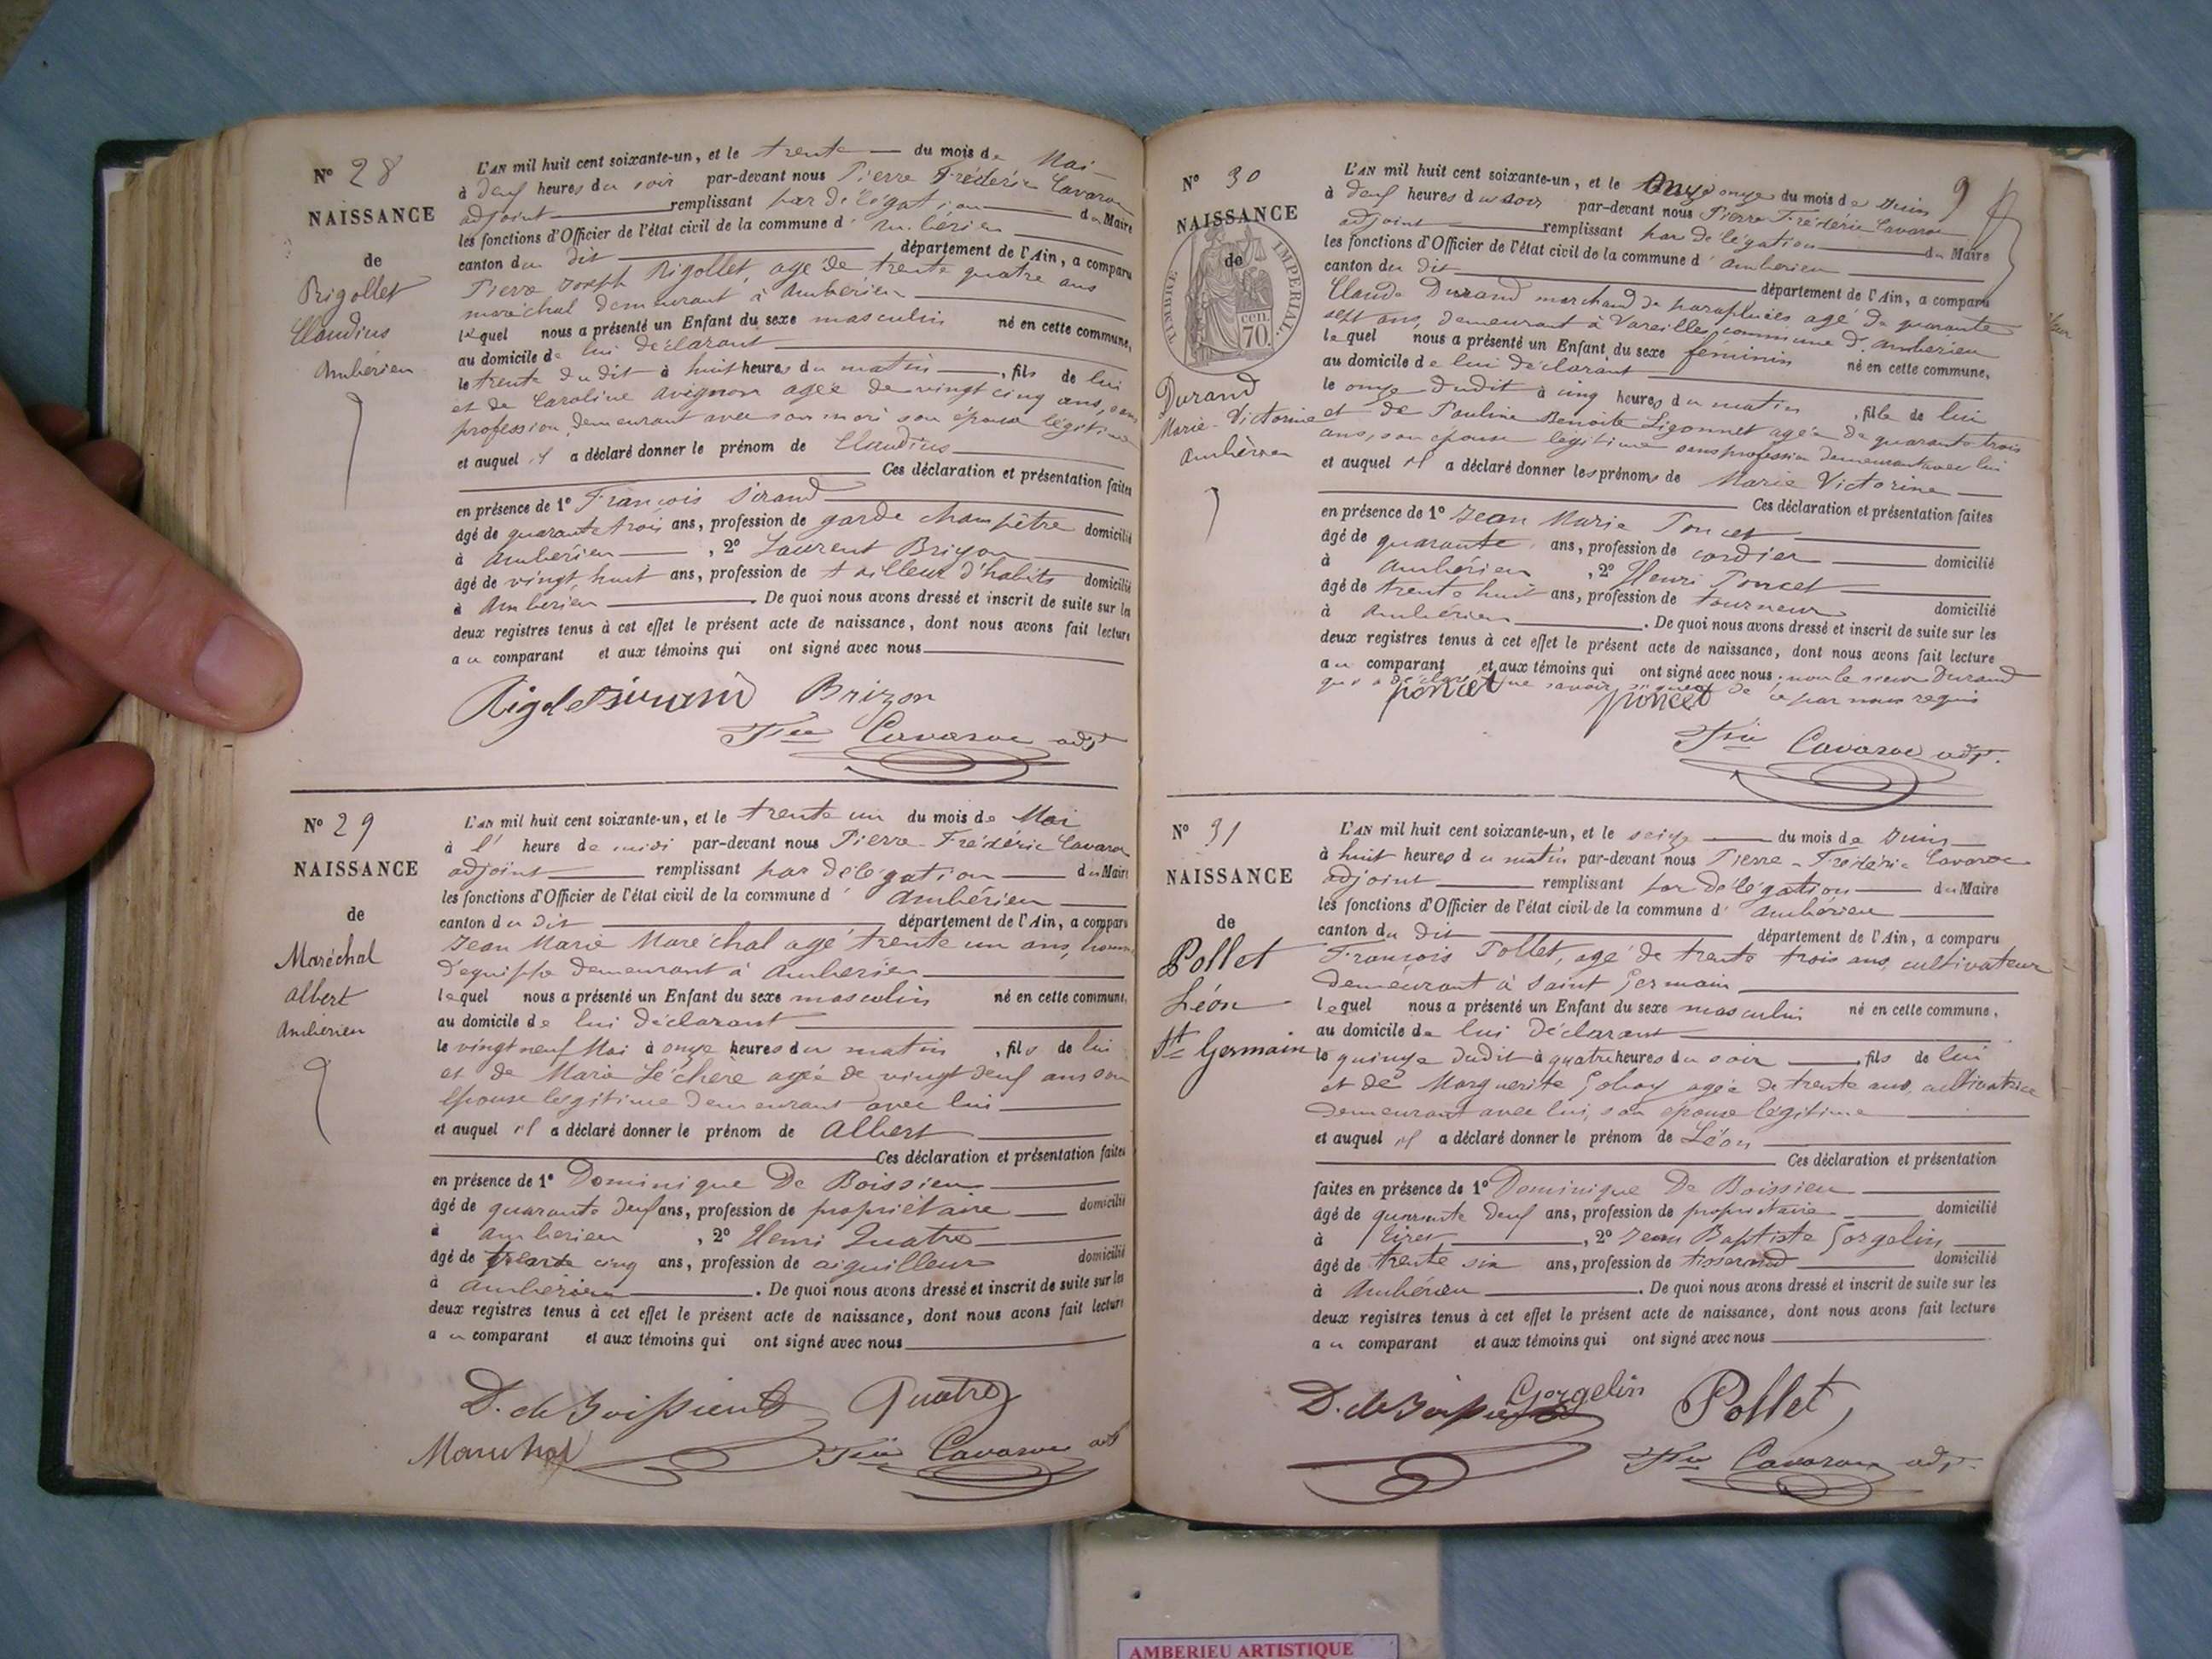 N° 28
NAISSANCE
de
Rigollet
Claudius
Ambérieu
L'AN mil huit cent soixante-un, et le trente du mois de Mai
à deux heures du soir par-devant nous Pierre Frédéric Cavaroc
adjoint remplissant par délégation du Maire
les fonctions d'Officier de l'état civil de la commune d'Ambérieu
canton du dit département de l'Ain, a comparu
Pierre Joseph Rigollet, agé de trente quatre ans
maréchal demeurant à Ambérieu
lequel nous a présenté un Enfant du sexe masculin né en cette commune,
au domicile de lui déclarant
le trente du dit à huit heures du matin, fils de lui
et de Caroline Avignon agée de vingt cinq ans, sans
profession, demeurant avec son mari son épouse légitime
et auquel il a déclaré donner le prénom de Claudius
Ces déclaration et présentation faites
en présence de 1° François Sirand
âgé de quarante trois ans, profession de garde champêtre domicilié
à Ambérieu, 2° Laurent Brizon
âgé de vingt huit ans, profession de tailleur d'habits domicilié
à Ambérieu. De quoi nous avons dressé et inscrit de suite sur les
deux registres tenus à cet effet le présent acte de naissance, dont nous avons fait lecture
au comparant et aux témoins qui ont signé avec nous
Brizon
Cavaroc adjt
N° 29
NAISSANCE
de
Maréchal
Albert
Ambérieu
L'AN mil huit cent soixante-un, et le trente un du mois de Mai
à l' heure de midi par-devant nous Pierre-Frédéric Cavaroc
adjoint remplissant par délégation du Maire
les fonctions d'Officier de l'état civil de la commune d'Ambérieu
canton du dit département de l'Ain, a comparu
Jean Marie Maréchal agé trente un ans, homme
d'equippe demeurant à Ambérieu
lequel nous a présenté un Enfant du sexe masculin né en cette commune,
au domicile de lui déclarant
le vingt neuf Mai à onze heures du matin, fils de lui
et de Marie Léchère agée de vingt deux ans son
épouse légitime demeurant avec lui
et auquel il a déclaré donner le prénom de Albert
Ces déclaration et présentation faites
en présence de 1° Dominique De Boissieu
âgé de quarante deux ans, profession de propriétaire domicilié
à Ambérieu, 2° Henri Quatre
âgé de trente cinq ans, profession de aiguilleur domicilié
à Ambérieu. De quoi nous avons dressé et inscrit de suite sur les
deux registres tenus à cet effet le présent acte de naissance, dont nous avons fait lecture
au comparant et aux témoins qui ont signé avec nous
D. de Boissieu Quatre
Marechal Cavaroc adt
N° 30
9
NAISSANCE
de
TIMBRE IMPERIAL
70 cen.
Durand
Marie-Victorine
Ambérieu
L'AN mil huit cent soixante-un, et le onze du mois de Juin
à deux heures du soir par-devant nous Pierre Frédéric Cavaroc
adjoint remplissant par délégation du Maire
les fonctions d'Officier de l'état civil de la commune d'Ambérieu
canton du dit département de l'Ain, a comparu
Claude Durand marchand de parapluies agé de quarante
sept ans, demeurant à Vareilles, commune d'Ambérieu
lequel nous a présenté un Enfant du sexe féminin né en cette commune,
au domicile de lui déclarant
le onze dudit à cinq heures du matin, fille de lui
et de Pauline Benoite Ligonnet agée de quarante trois
ans, son épouse légitime sans profession demeurant avec lui
et auquel il a déclaré donner les prénoms de Marie Victorine
Ces déclaration et présentation faites
en présence de 1° Jean Marie Poncet
âgé de quarante ans, profession de cordier domicilié
à Ambérieu, 2° Henri Poncet
âgé de trente huit ans, profession de tourneur domicilié
à Ambérieu. De quoi nous avons dressé et inscrit de suite sur les
deux registres tenus à cet effet le présent acte de naissance, dont nous avons fait lecture
au comparant et aux témoins qui ont signé avec nous, non le sieur Durand
qui a déclaré ne savoir signer de ce par nous requis
poncet poncet
Cavaroc adjt.
N° 31
NAISSANCE
de
Pollet
Léon
St Germain
L'AN mil huit cent soixante-un, et le seize du mois de Juin
à huit heures du matin par-devant nous Pierre-Frédéric Cavaroc
adjoint remplissant par délégation du Maire
les fonctions d'Officier de l'état civil de la commune d'Ambérieu
canton du dit département de l'Ain, a comparu
François Pollet, agé de trente trois ans, cultivateur
demeurant à Saint Germain
lequel nous a présenté un Enfant du sexe masculin né en cette commune,
au domicile de lui déclarant
le quinze dudit à quatre heures du soir fils de lui
et de Marguerite agée de trente ans, cultivatrice
demeurant avec lui, son épouse légitime
et auquel il a déclaré donner le prénom de Léon
Ces déclaration et présentation
faites en présence de 1° Dominique De Boissieu
âgé de quarante deux ans, profession de propriétaire domicilié
à, 2° Jean Baptiste Gorgelin
âgé de trente six ans, profession de tisserand domicilié
à Ambérieu. De quoi nous avons dressé et inscrit de suite sur les
deux registres tenus à cet effet le présent acte de naissance, dont nous avons fait lecture
au comparant et aux témoins qui ont signé avec nous
D. de Boissieu Gorgelin Pollet
Cavaroc adjt.
AMBERIEU ARTISTIQUE